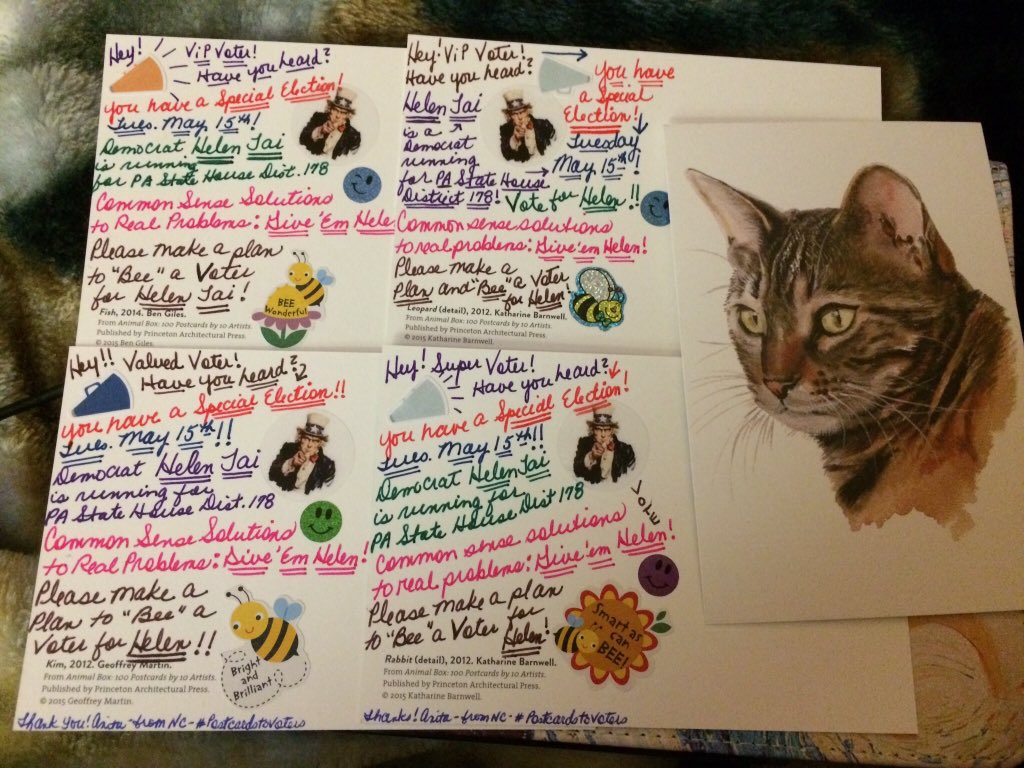 Hey! ViP Voter!
Have you heard?
you have a Special Election!
Tues. May 15th!
Democrat Helen Tai
is running
for PA State House Dist. 178
Common Sense Solutions
to Real Problems: Give 'Em Hele
Please make a plan
to "Bee" a Voter
for Helen Tai!
BEE
Wonderful
Fish, 2014. Ben Giles.
From Animal Box: 100 Postcards by 10 Artists.
Published by Princeton Architectural Press.
© 2015 Ben Giles.
Hey! ViP Voter!
Have you heard?
you have
a Special
Election!
Tuesday
May 15th!
Helen Tai
is a
Democrat
running
for PA State House
District 178!
Vote for Helen!!
Common sense solutions
to real problems: Give 'em Helen!
Please make a
Plan and "Bee" a Voter
for Helen!
Leopard (detail), 2012. Katharine Barnwell.
From Animal Box: 100 Postcards by 10 Artists.
Published by Princeton Architectural Press.
© 2015 Katharine Barnwell.
Hey!! Valued Voter!
Have you heard?
you have a Special Election!!
Tues. May 15th!!
Democrat Helen Tai
is running for
PA State House Dist. 178
Common Sense Solutions
to Real Problems: Give 'Em Helen!
Please make a
Plan to "Bee" a
Voter for Helen!!
Bright
and
Brilliant
Kim, 2012. Geoffrey Martin.
From Animal Box: 100 Postcards by 10 Artists.
Published by Princeton Architectural Press.
© 2015 Geoffrey Martin.
Thank you! Anita - from NC - #PostcardstoVoters
Hey! Super Voter!
Have you heard?
you have a Special Election!
Tues. May 15th!!
Democrat Helen Tai
is running for
PA State House Dist 178
Vote
Common sense solutions
to real problems: Give 'em Helen!
Please make a plan
to "Bee" a Voter for
Helen!
Smart as
can
BEE!
Rabbit (detail), 2012. Katharine Barnwell.
From Animal Box: 100 Postcards by 10 Artists.
Published by Princeton Architectural Press.
© 2015 Katharine Barnwell.
Thanks! Anita - from NC - #PostcardstoVoters